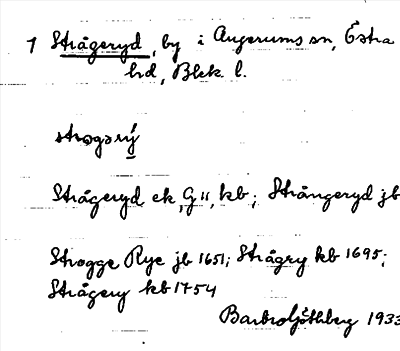 1 Strågeryd, by i Augerums sn, Östra
hd, Blek. l.
strøgərý
Strågeryd ek, G II, kb; Strångeryd jb
Strogge Rye jb 1651; Strågry kb 1695;
Strågery kb 1754
Barbro Göthberg 1933